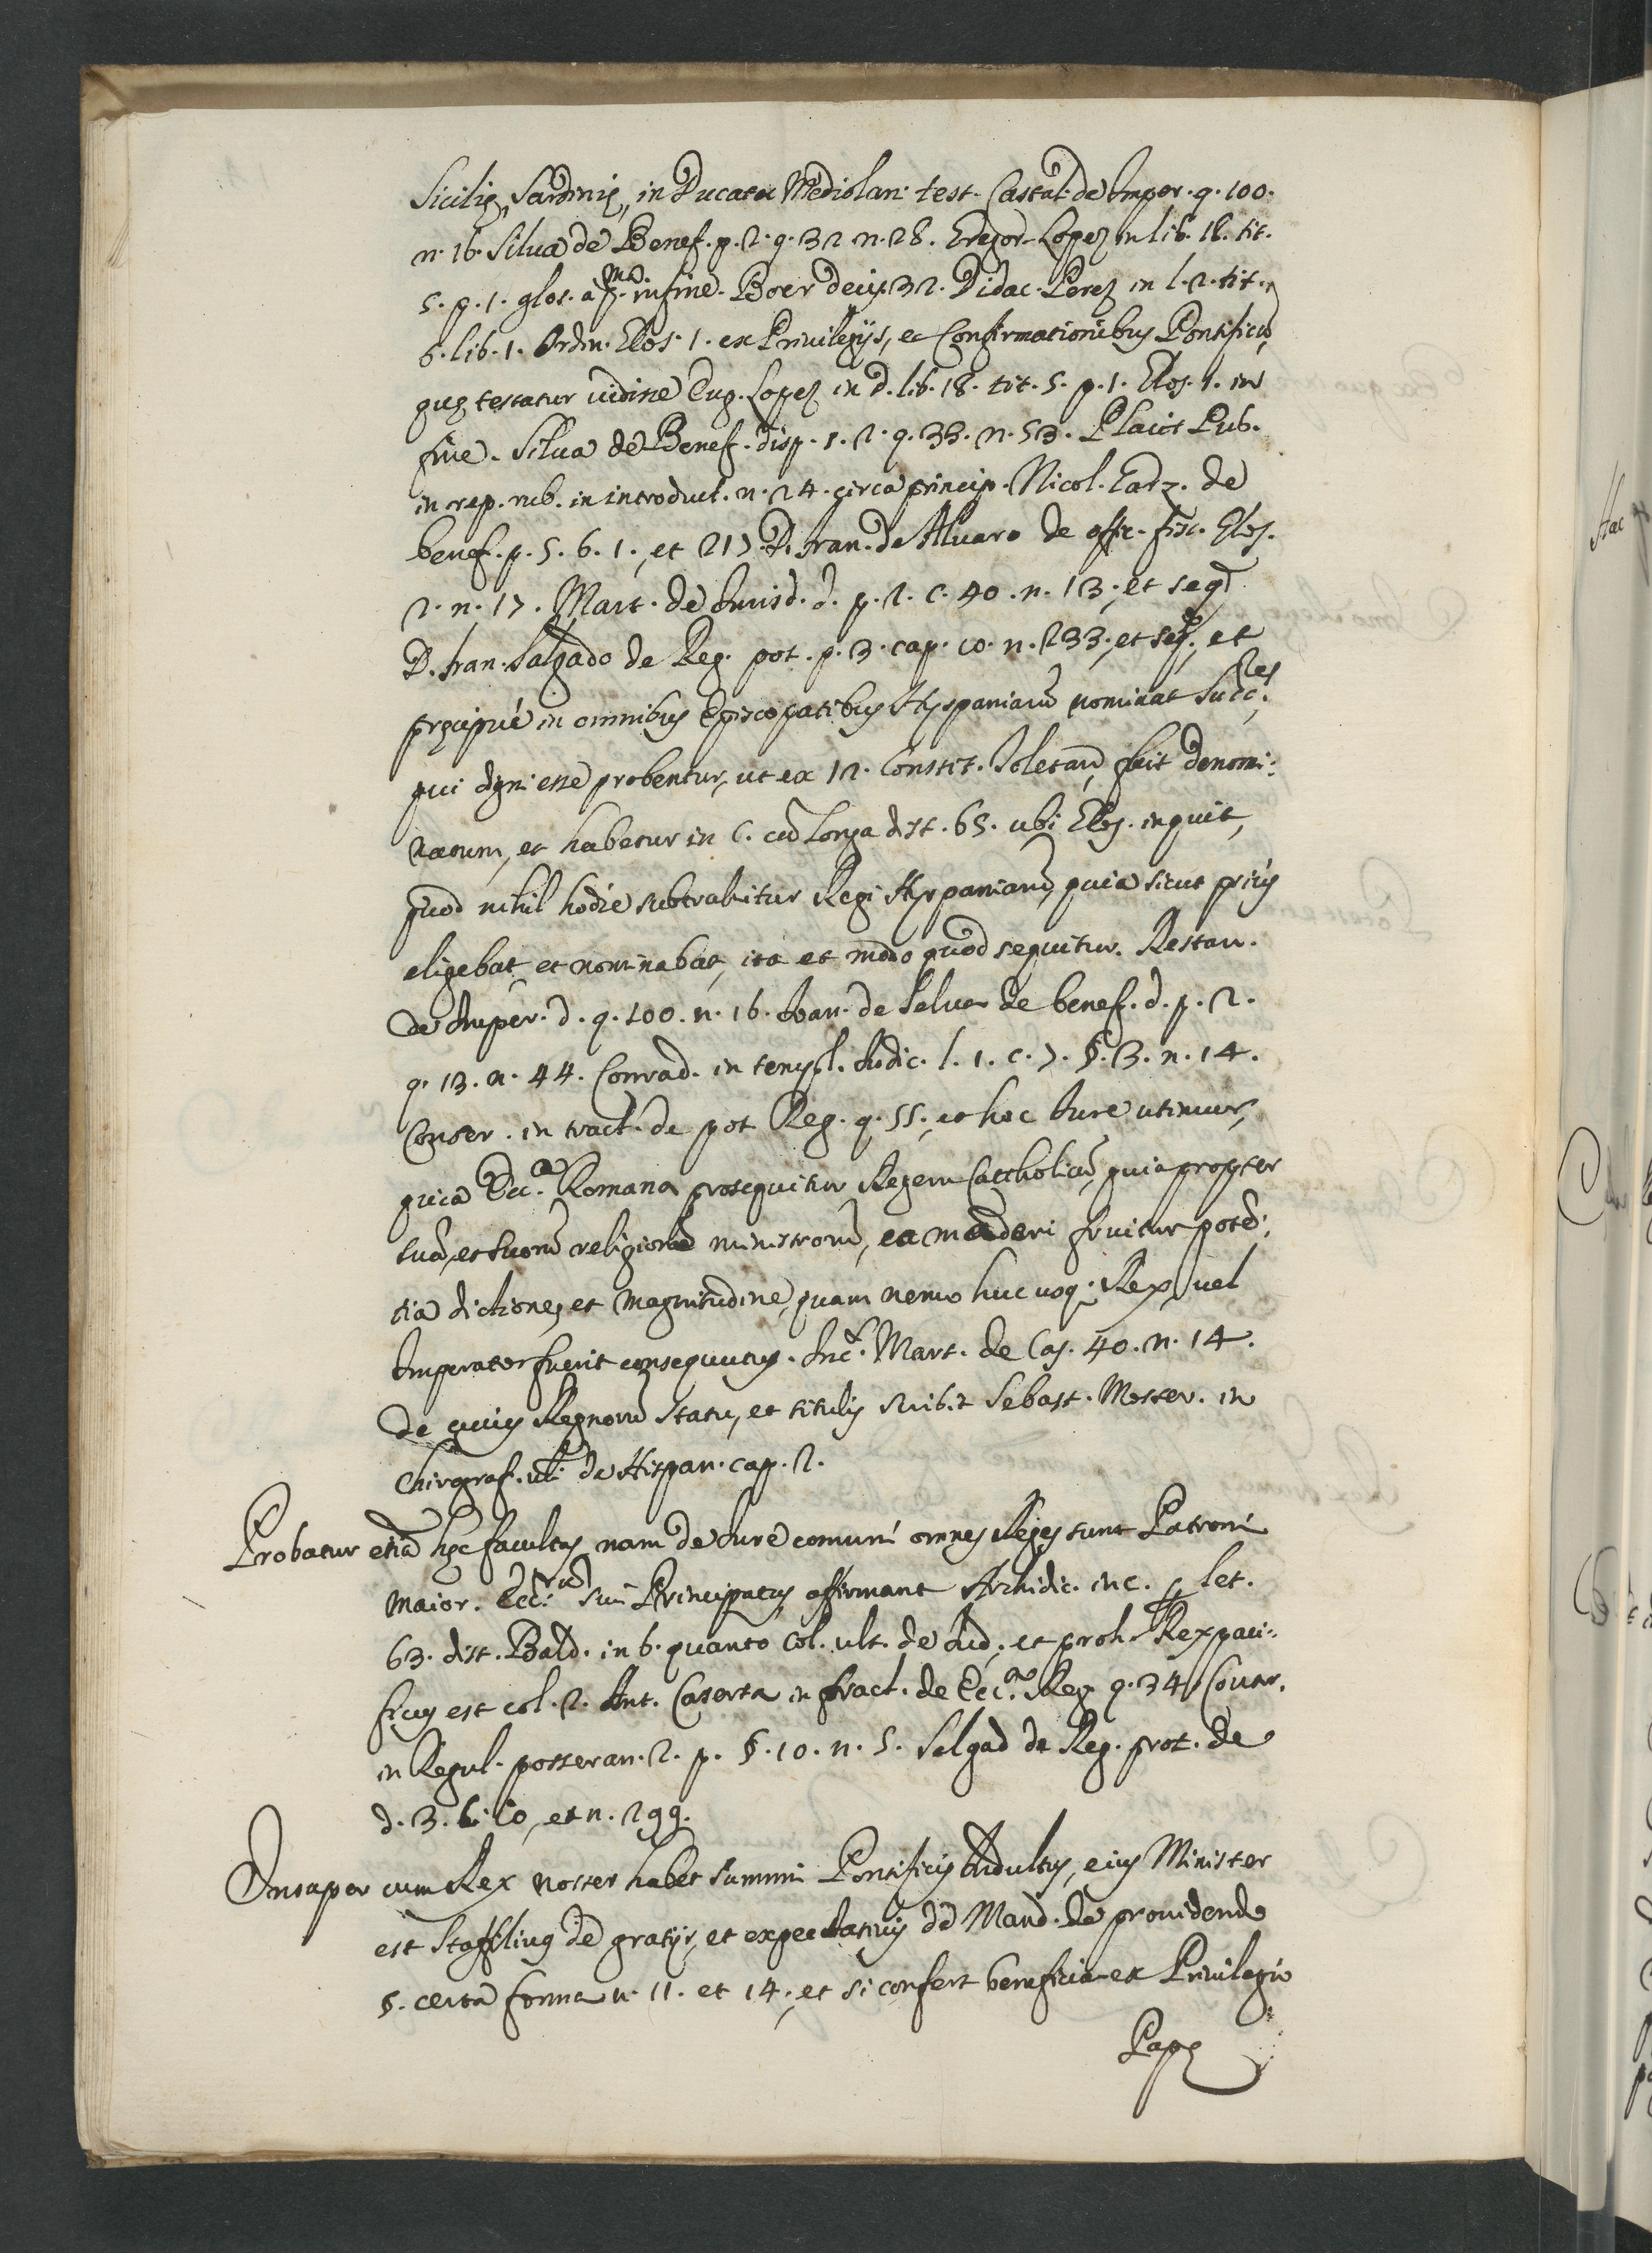 Sicilię, Sardinię, in Ducatu Mediolan. test. Castal. de Imper. q. 100.
n. 16. Silua de Benef. p. 2. q. 32 n. 28. Gregor. Lopez in lib. 18. tit.
5. p. 1. glos. in fine. Boer decis. 32. Didac. Perez in l. 2. tit.
6. lib. 1. Ordin. Glos. 1. ex Priuilegijs, et Confirmationibus Pontificũ,
quę testatur uidisse Lopez in d. lib. 18. tit. 5. p. 1. Glos. 1. in
fine. Silua de Benef. disp. 1. 2. q. 33. n. 53. Pub.
in rep. rub. in introduct. n. 24. circa princip. Nicol. Garz. de
benef. p. 5. 6. 1., et 217. D. Fran. de Aluaro de offic. fisc. Glos.
2. n. 17. Mart. de Iurisd. d. p. 2. c. 40. n. 13., et seq.
D. Fran. Salgado de Reg. pot. p. 3. cap. 10. n. 233., et seq., et
pręcipué in omnibus Episcopatibus Hyspaniarũ nominat Succ.res
qui digni esse probentur, ut ex 12. Constit. Toletanę fuit denomi:
natum, et habetur in C. cũ Longa dist. 63. ubi Glos. inquit,
quod nihil hodie subtrahitur Regi Hyspaniarũ, quia sicut priús
eligebat, et nominabat, ita et modo quod sequitur. Restau.
de Imper. d. q. 100. n. 16. Ioan. de Selua de benef. d. p. 2.
q. 13. n. 44. Conrad. in templ. Iudic. l. 1. c. 7. §. 3. n. 14.
Conser. in tract. de pot Reg. q. 55., et hoc Iure utimur,
quia Ecc.a Romana prosequitur Regem Cattholicũ, quia propter
suã, et suorũ religionẽ ministrorũ, ea fruitur potẽ:
tia dictione, et magnitudine, quam nemo huc usq. Rex, uel
Imperator fuerit consequutus. Mart. de Cas. 40. n. 14.
de cuius Regnorũ statu, et titulis scribit Sebast. Moster. in
Chirograf. ubi de Hispan. cap. 2.
Probatur etiã hęc facultas, nam de Iure comuni omnes Reges sunt Patroni
maior. Ecc. sui Principatus affirmant Archidic. in c. let.
63. dist. Bald. in 6. quanto col. ult. de Iud., et proh. Rex paci:
ficus est col. 2. Ant. Caserta in tract. de Ecc.a Reg q. 34 Couar.
in Regul. posseran. 2. p. §. 10. n. 5. Salgad de Reg. prot. de
d. 3. 6. 10, et n. 299.
Insuper cum Rex noster habet summi Pontificis Indultus, eius Minister
est Staffilius de gratijs, et expectatiuis de Mand. de prouidendo
§. certa forma n. 11. et 14., et si confert beneficia ex Priuilegio
Papę